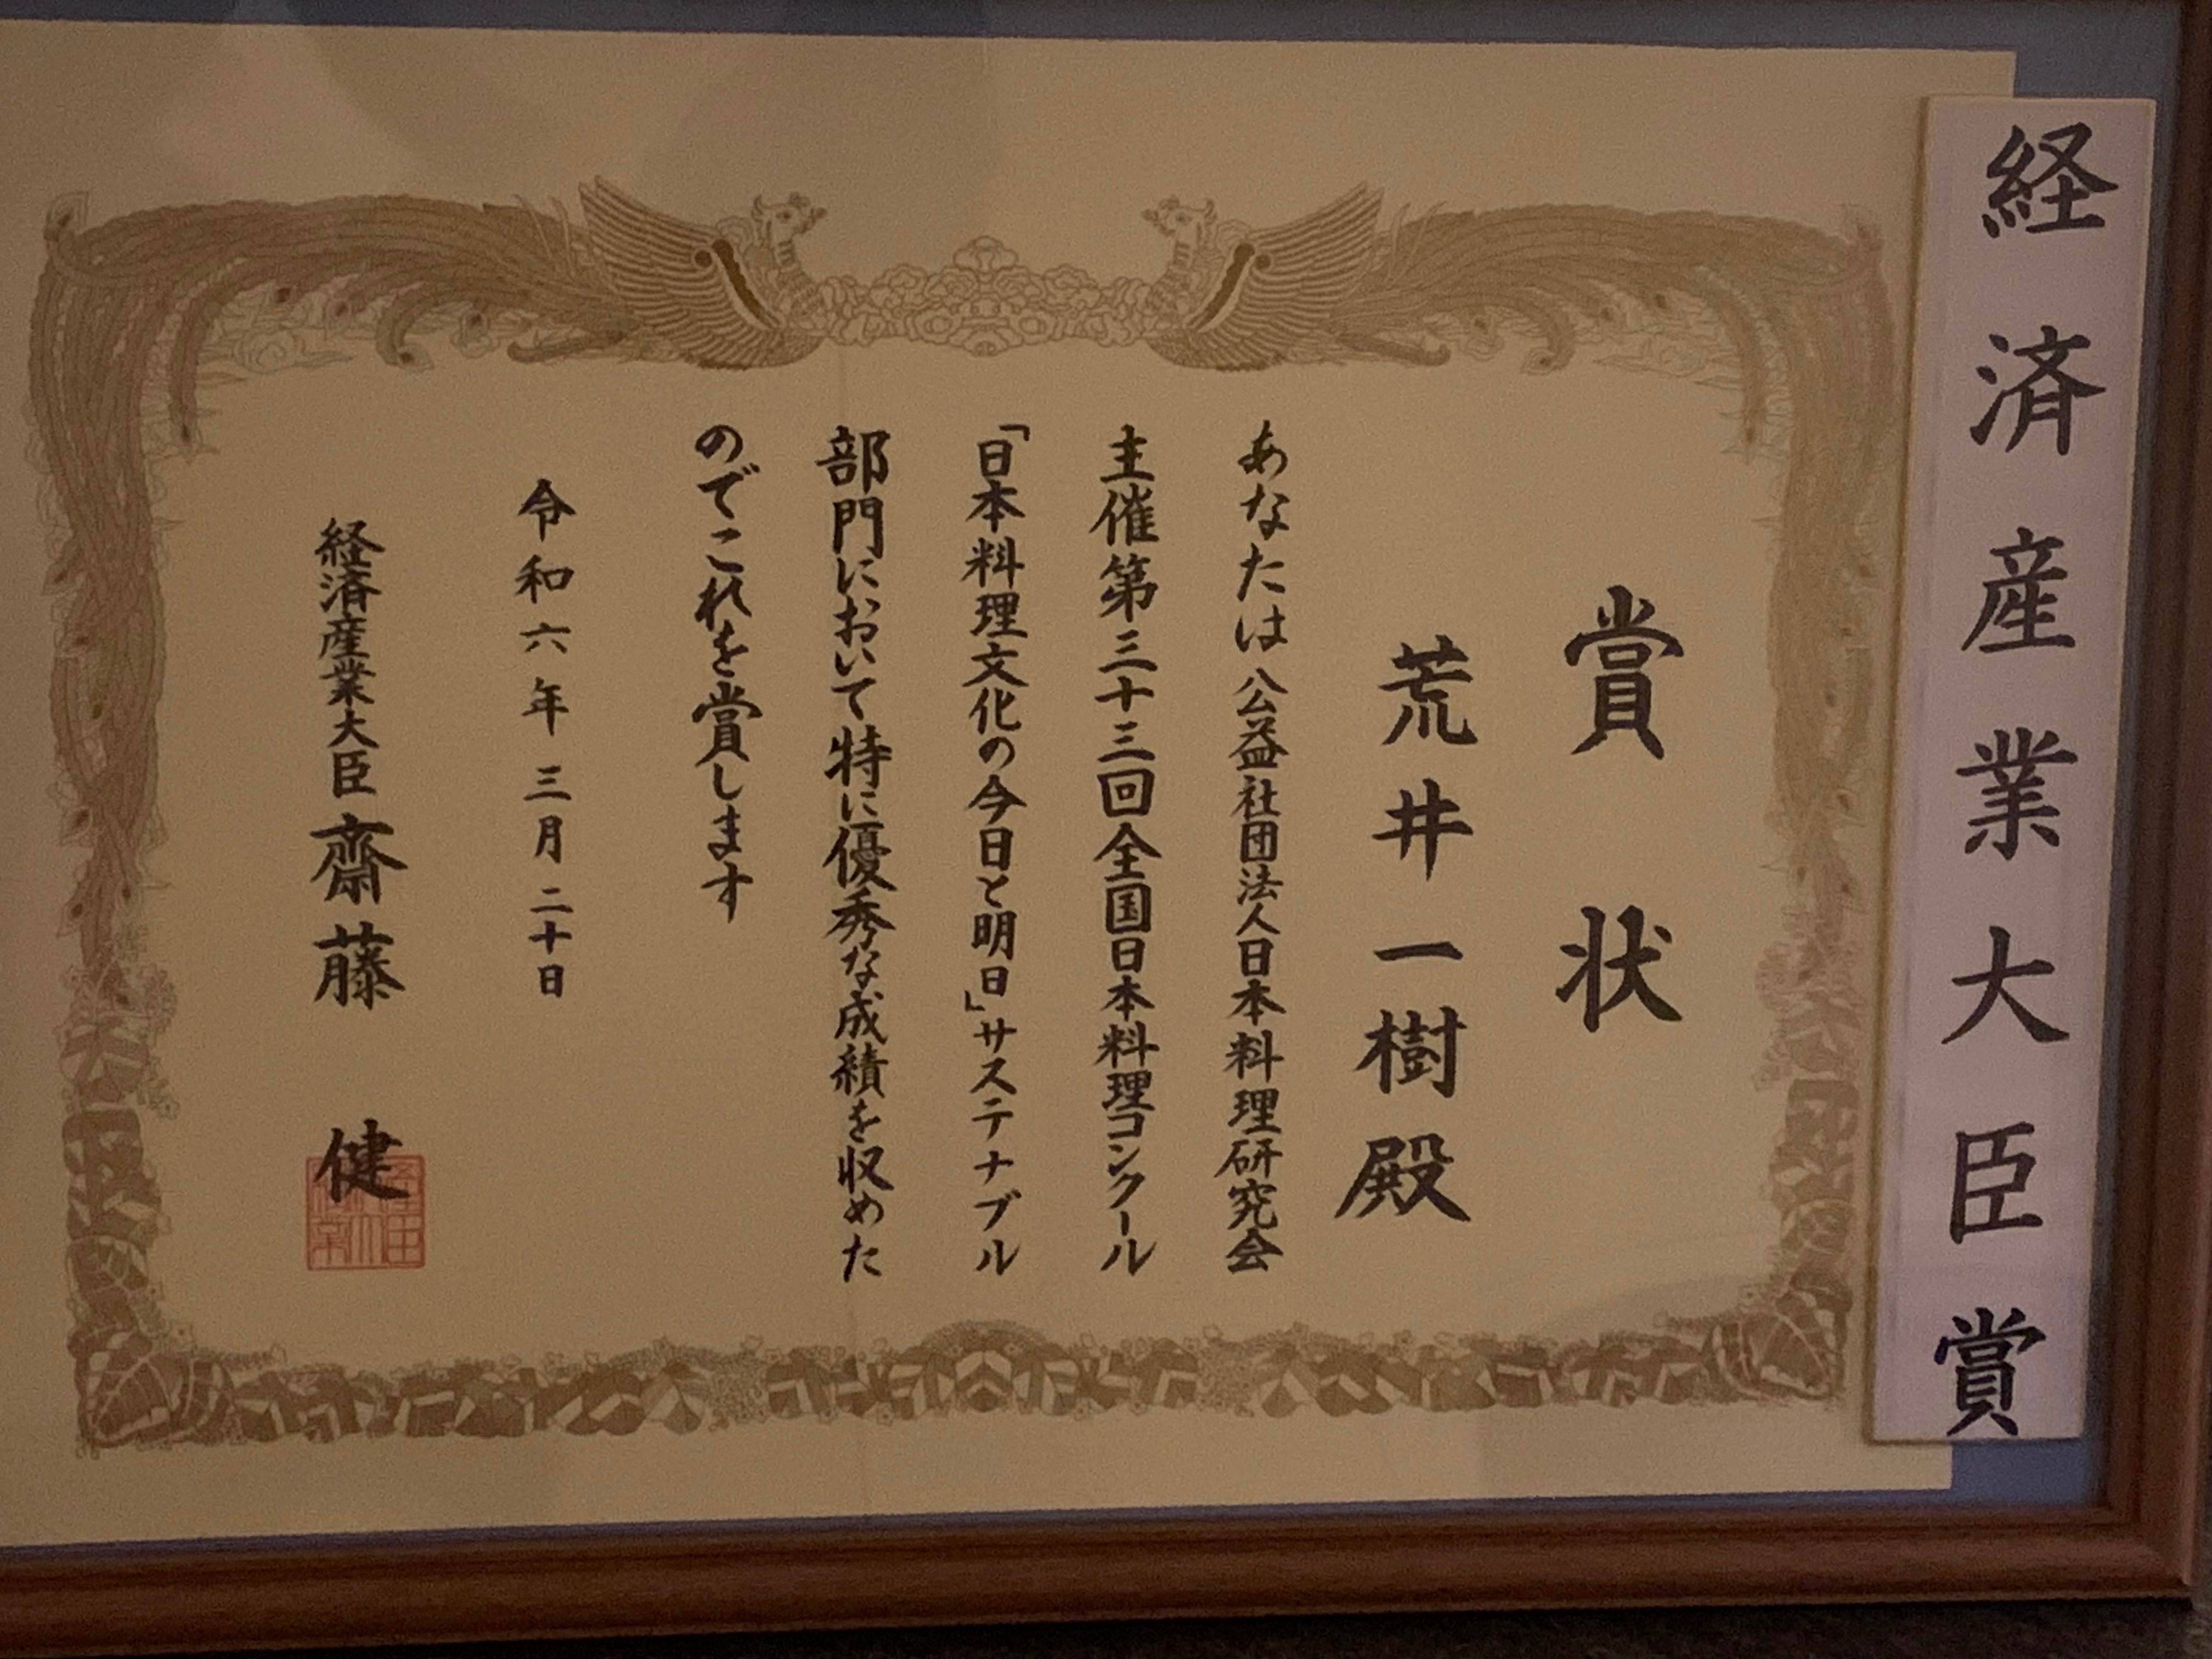 経済産業大臣賞
賞状
荒井一樹殿
あなたは公益社団法人日本料理研究会
主催第三十三回全国日本料理コンクール
「日本料理文化の今日と明日」サステナブル
部門において特に優秀な成績を収めた
のでこれを賞します
令和六年三月二十日
経済産業大臣 齋藤 健